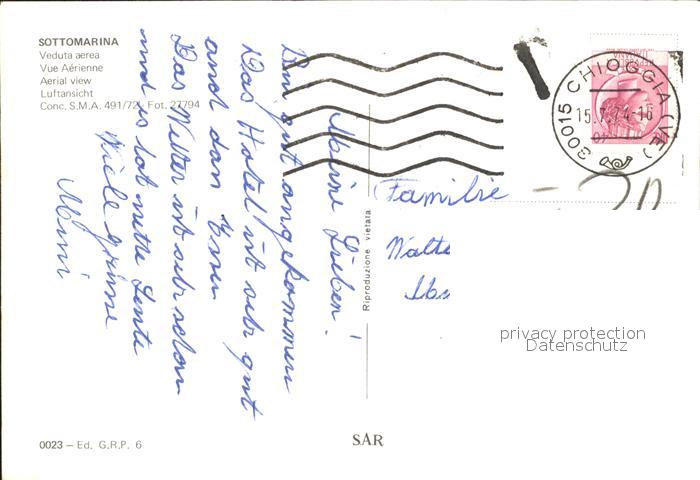 SOTTOMARINA
Veduta aerea
Vue Aérienne
Aerial view
Luftansicht
Conc. S.M.A. 491/72 Fot. 27794
Meine Lieben!
Bin gut angekommen
Das Hotel ist sehr gut
and dan Essen
Das Wetter ist sehr schön
und es hat nette Leute
Viele grüsse
Mimi
Riproduzione vietata
30015 CHIOGGIA (VE)
15.7.74-16
Familie
Walte
privacy protection
Datenschutz
0023 – Ed. G.R.P. 6
SAR